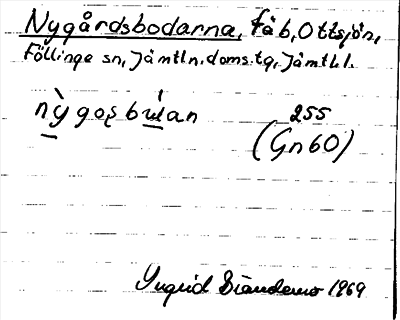 Nygårdsbodarna, fäb, Ottsjön,
Föllinge sn, Jämtln. doms. tg, Jämtl. l.
nỳgoș búlan 255
(Gn 60)
Ingrid 1969